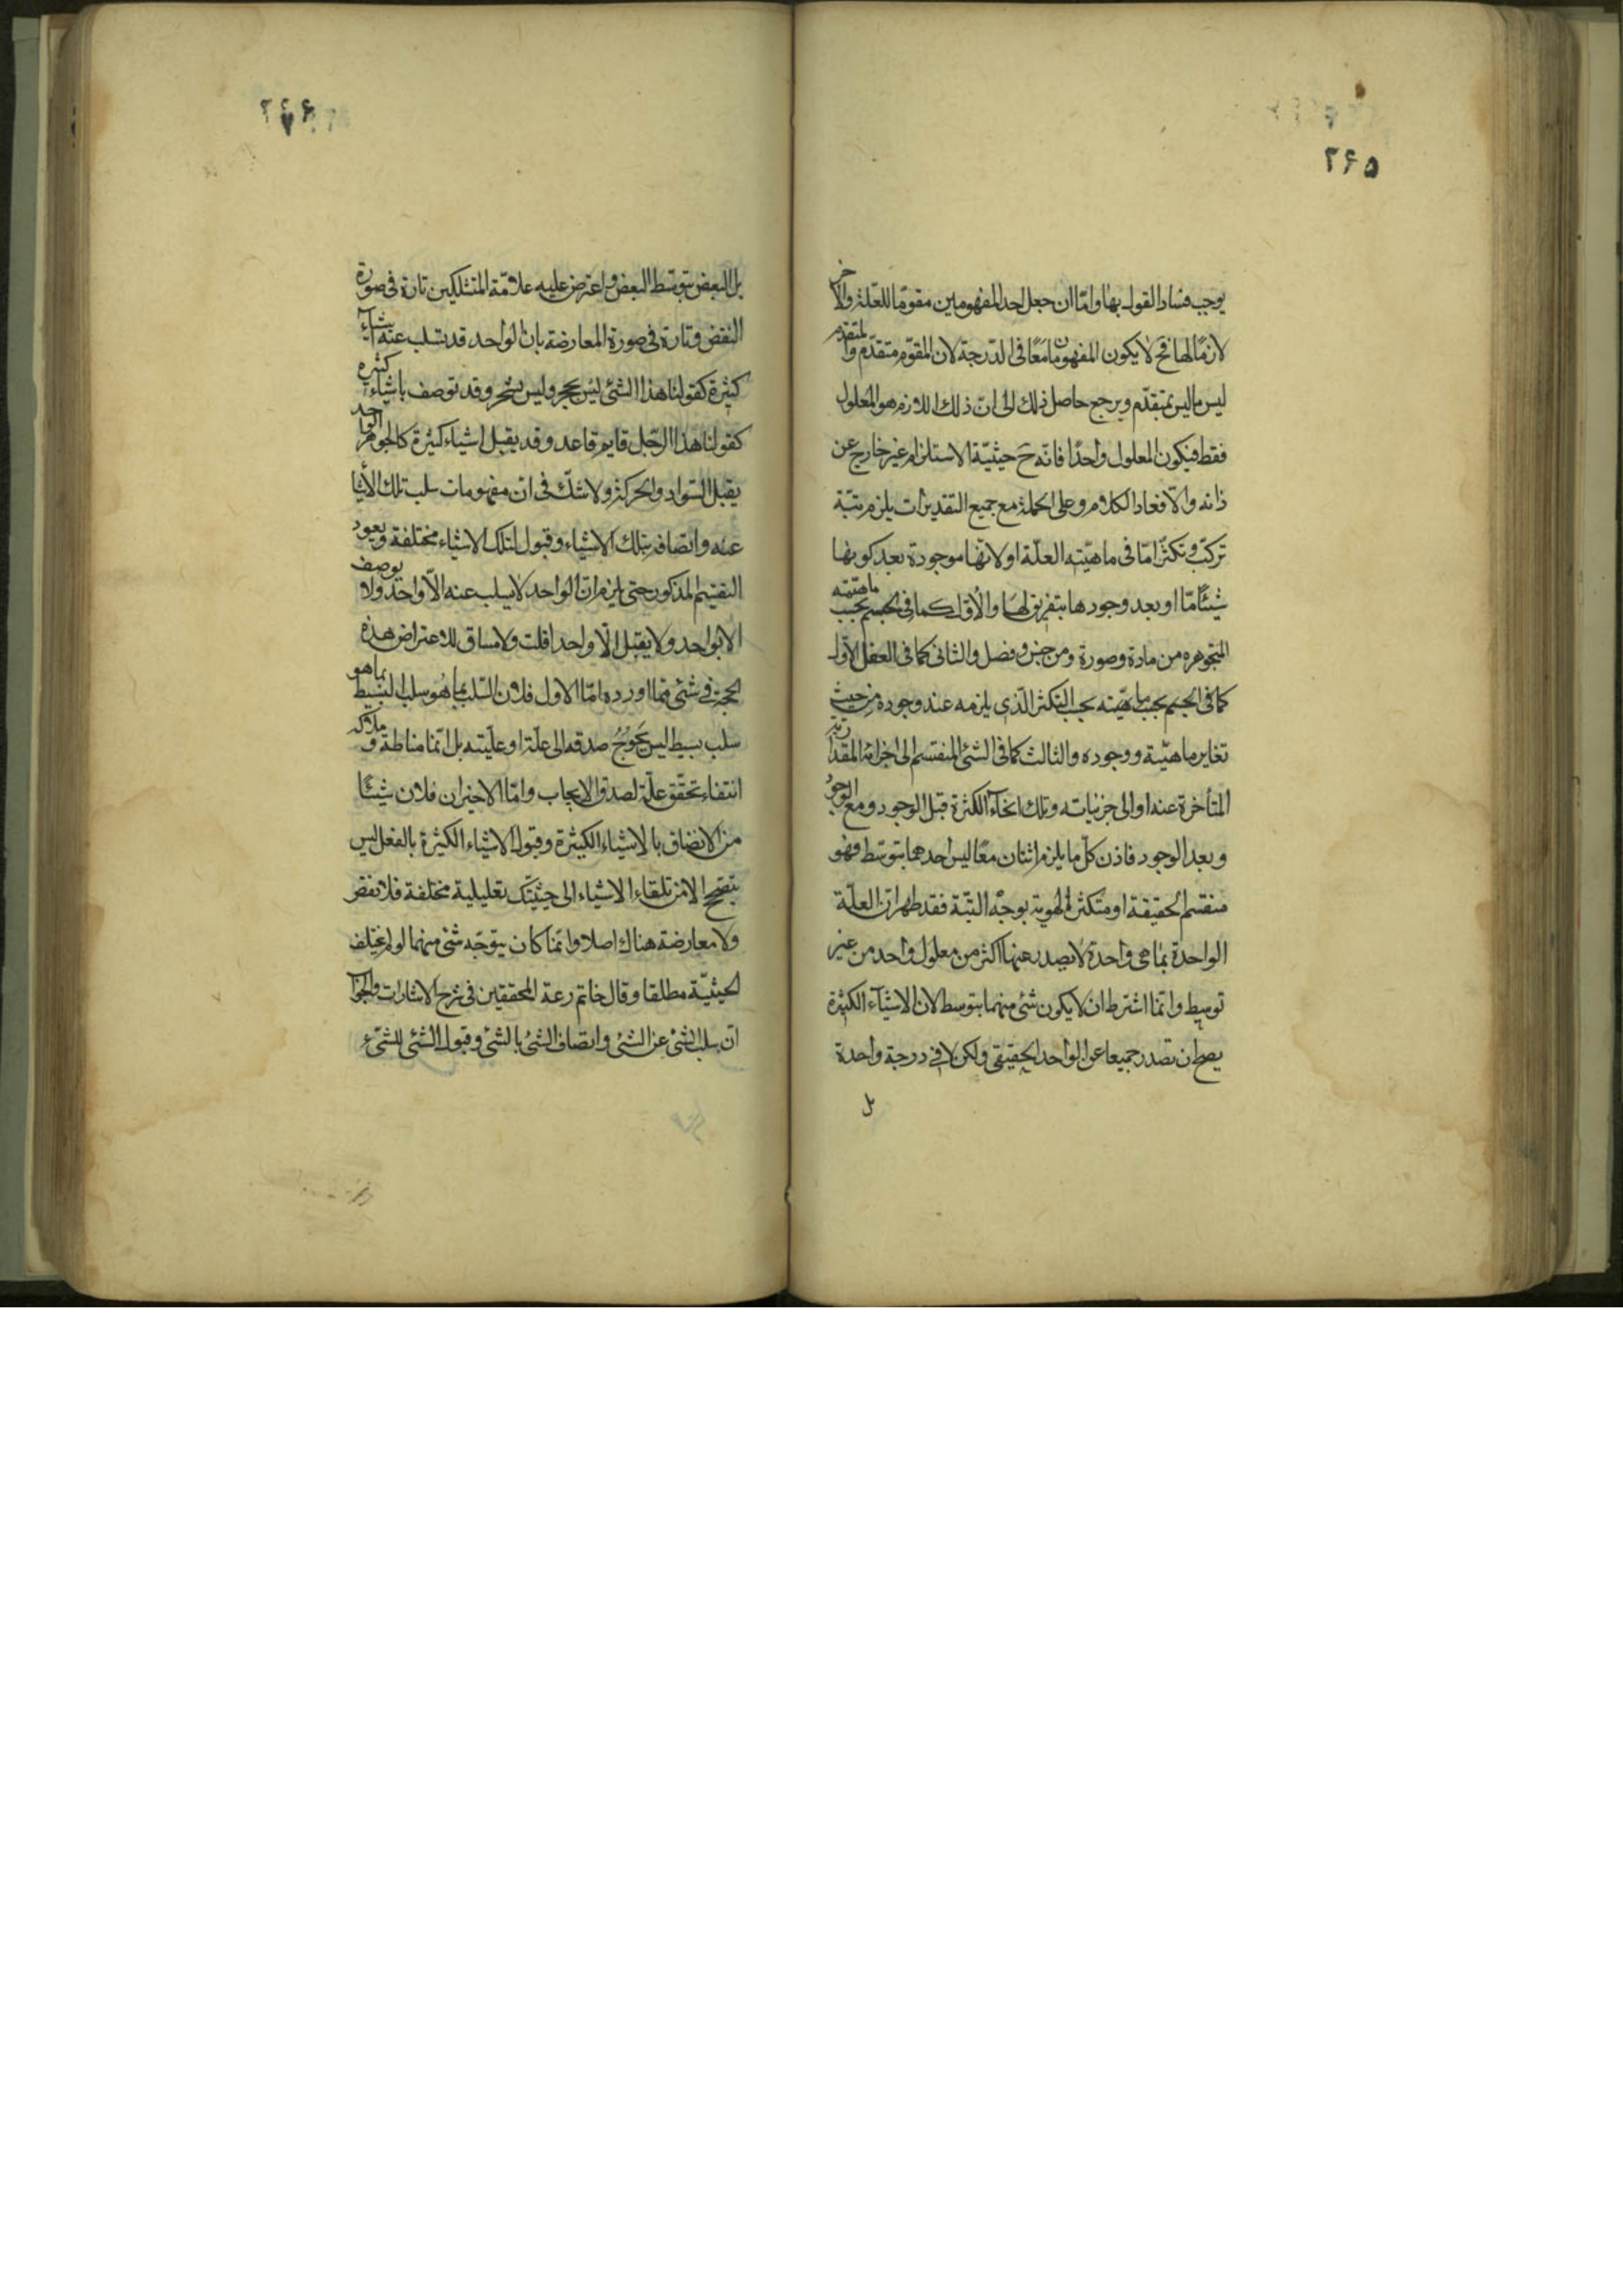 ۲۶۵
يوجب فساد القول بها واما ان جعل احد المفهومين مقوما للعلة والآخر
لازما لها فح لا يكون المفهومان معا في الدرجة لان المقوم متقدم والمتقدم
ليس ما ليس بمتقدم ويرجع حاصل ذلك الى ان ذلك اللازم هو المعلول
فقط فيكون المعلول واحدا فانه ح حيثية الاستلزام غير خارج عن
ذاته والا فعاد الكلام وعلى الجملة مع جميع التقديرات يلزم منه
تركب وتكثر اما في ماهيته العلة او لانها موجودة بعد كونها
شيئا ما او بعد وجودها بتفريق لها والاول كما في الجسم بحسب ماهيته
المتجوهره من مادة وصورة ومن جنس وفصل والثاني كما في العقل الاول
كما في الجسم بحسب ماهيته بحسب التكثر الذي يلزمه عند وجوده من حيث
تغاير ماهيته ووجوده والثالث كما في الشئ المنقسم الى اجزائه المقدارية
المتأخرة عنه او الى جزئياته وتلك انحاء الكثرة قبل الوجود ومع الوجود
وبعد الوجود فاذن كل ما يلزم اثنان معا ليس احدهما بتوسط فهو
منقسم الحقيقة او متكثر الهوية بوجه البتة فقد ظهر ان العلة
الواحدة بما هي واحدة لا يصدر عنها اكثر من معلول واحد من غير
توسيط وانما اشترط ان لا يكون شئ منهما بتوسط لان الاشياء الكثيرة
يصح ان تصدر جميعا عن الواحد الحقيقي ولكن لا في درجة واحدة
بل
۲۶۶
بل البعض بتوسط البعض واعترض عليه علامة المتشككين تارة في صورة
النقض وتارة في صورة المعارضة بان الواحد قد تسلب عنه اشياء
كثيرة كقولنا هذا الشئ ليس بحجر وليس بشجر وقد توصف باشياء كثيره
كقولنا هذا الرجل قايم قاعد وقد يقبل اشياء كثيرة كالجوهر الواحد
يقبل السواد والحركة ولا شك في ان مفهومات سلب تلك الأشيا
عنه واتصافه بتلك الاشياء وقبول لتلك الاشياء مختلفة ويعود
التقسيم المذكور حتى يلزم ان الواحد لا يسلب عنه الا واحد ولا توصف
الا بواحد ولا يقبل الا واحدا قلت ولا مساق للاعتراض هذه
الحجة في شئ مما اورده اما الاول فلان السلب بما هو سلب البسيط بما هو
سلب بسيط ليس يحوج صدقه الى علة او علية بل انما مناطة وملاكه
انتفاء تحقق علة لصدق الايجاب واما الاخيران فلان شيئا
من الاتصاف بالاشياء الكثيرة وقبول الاشياء الكثيرة بالفعل ليس
يتصحح الا من تلقاء الاشياء الى حيثيتك تعليلية مختلفة فلا نقض
ولا معارضة هناك اصلا وانما كان يتوجه شئ منهما لو لم يختلف
الحيثية مطلقا وقال خاتم رعة المحققين في شرح الاشارات والجوا
ان سلب الشئ عن الشئ واتصاف الشئ بالشئ وقبول الشئ للشئ